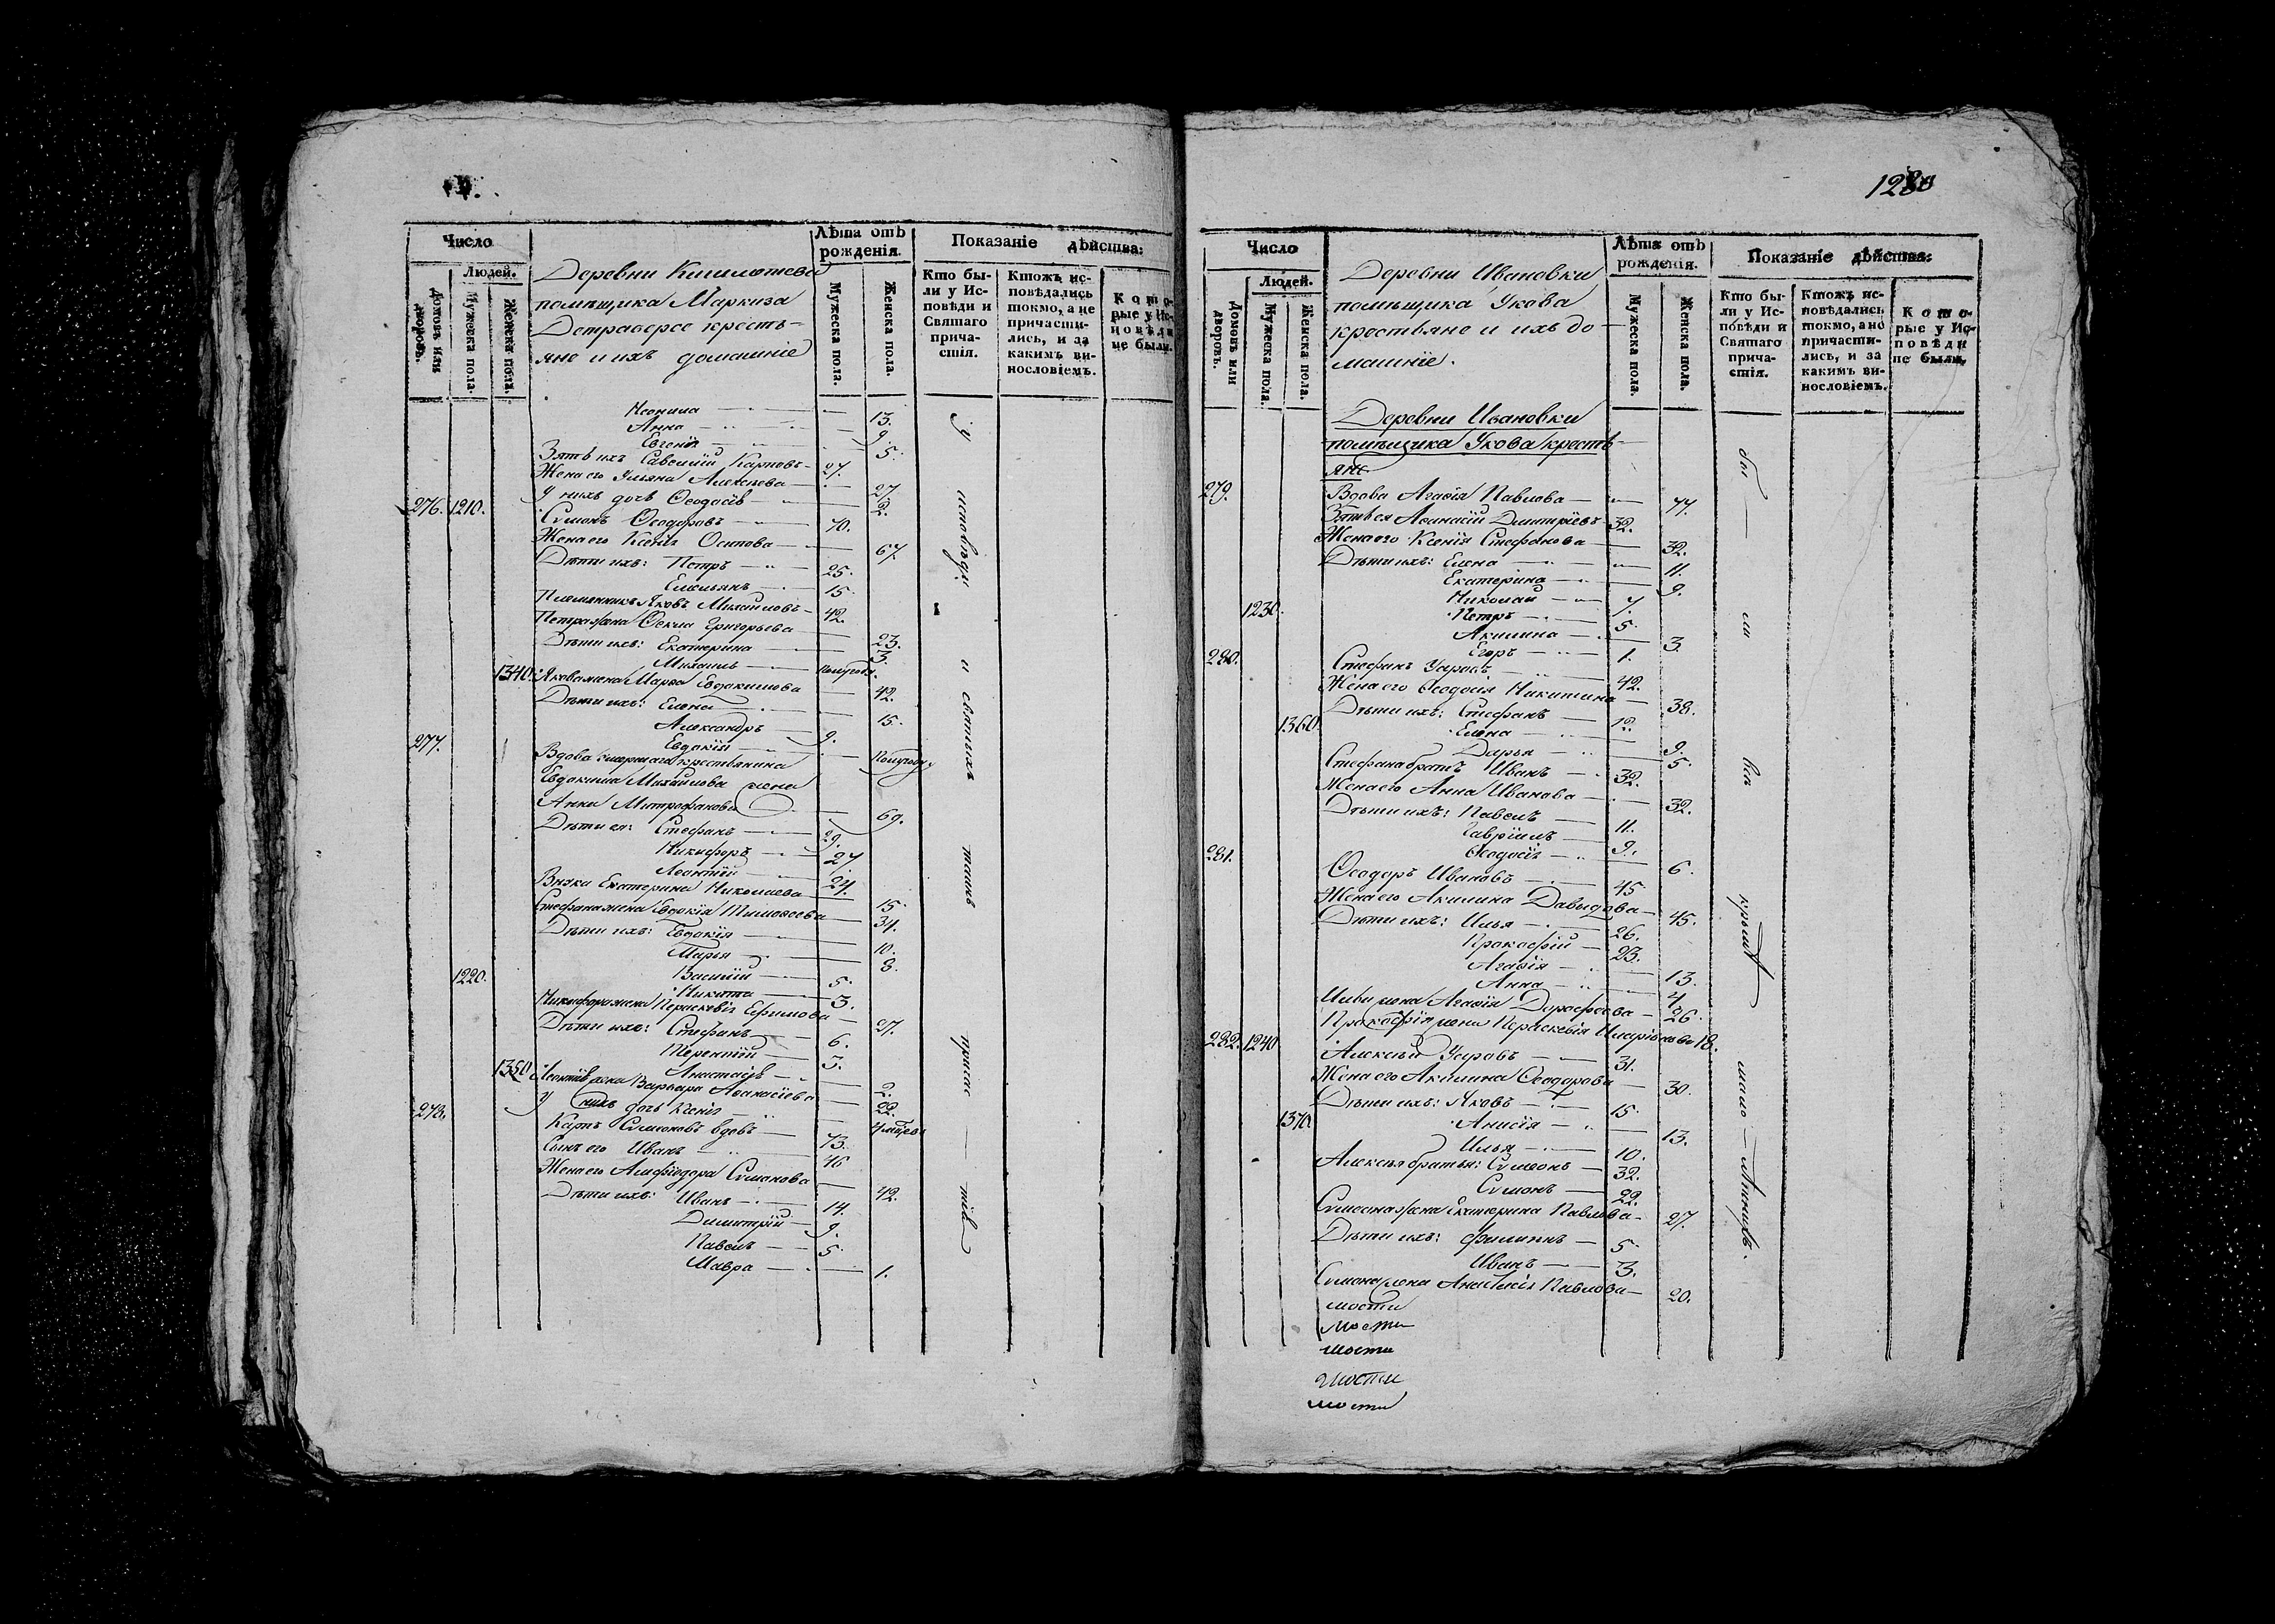 Число
Людей.
Домовъ или дворовъ.
Мужеска пола.
Женска пола.
Деревни
помѣщика Маркиза
Детраверсе кресть-
яне и ихъ домашніе
Лѣта отъ рожденія.
Мужеска пола.
Женска пола.
Показаніе дѣйства:
Кто бы-
ли у Ис-
повѣди и
Святаго
прича-
стія.
Ктожъ ис-
повѣдались
токмо, а не
причасти-
лись, и за
какимъ ви-
нословіемъ.
Кото-
рые у Ис-
повѣди
не были.
Неонила 13.
Анна 9.
Евгенія 5.
Зять ихъ Савелій Карповъ 27.
Жена его Ульяна Алексѣева 27.
У нихъ дочь Ѳеодосія 2.
276. 1210. Сѵмонъ Ѳеодоровъ 70.
Жена его Ксенія Осипова 67.
Дѣти ихъ: Петръ 25.
Емельянъ 15.
Племянникъ Яковъ Михайловъ 42.
Петра жена Ѳекла Григорьева 23.
Дѣти ихъ: Екатерина 3.
Михаилъ полугода.
1340. Якова жена Марѳа Евдокимова 42.
Дѣти ихъ: Елена 15.
Александръ 9.
Евдокія полугоду
277. Вдова умершаго крестьянина
Евдокима Михайлова жена
Анна Митрофанова 69.
Дѣти ея: Стефанъ 29.
Никифоръ 27.
Леонтій 24.
Внука Екатерина Николаева 15.
Стефана жена Евдокія Тимоѳеева 34.
Дѣти ихъ: Евдокія 10.
Марья 8.
1220. Василій 5.
Никита 3.
Никифора жена Параскевія Ефимова 27.
Дѣти ихъ: Стефанъ 6.
Терентій 3.
Анастасія 2.
1350. Леонтія жена Варвара Аѳанасіева 22.
У нихъ дочь Ксенія 4 мѣсяц.
278. Карпъ Сѵмоновъ вдовъ 73.
Сынъ его Иванъ 46
Жена его Алефтодора Сѵмонова 42.
Дѣти ихъ: Иванъ 14.
Димитрій 9.
Павелъ 5.
Мавра 1.
у исповѣди и святыхъ таинъ причас — тія
1280
Число
Людей.
Домовъ или дворовъ.
Мужеска пола.
Женска пола.
Деревни Ивановки
помѣщика Укова
крестьяне и ихъ до-
машніе.
Лѣта отъ рожденія.
Мужеска пола.
Женска пола.
Показаніе дѣйства:
Кто бы-
ли у Ис-
повѣди и
Святаго
прича-
стія.
Ктожъ ис-
повѣдались
токмо, а не
причасти-
лись, и за
какимъ ви-
нословіемъ.
Кото-
рые у Ис-
повѣди
не были.
Деревни Ивановки
помѣщика Укова кресть-
яне
279. Вдова Агафія Павлова 77.
Зять ея Аѳанасій Дмитріевъ 32.
Жена его Ксенія Стефанова 32.
Дѣти ихъ: Елена 11.
Екатерина 9.
Николай 7.
1230. Петръ 5.
Акилина 3.
Егоръ 1.
280. Стефанъ Уаровъ 42.
Жена его Ѳеодосія Никитина 38.
Дѣти ихъ: Стефанъ 12.
1360. Елена 9.
Дарья 5.
Стефана братъ Иванъ 32.
Жена его Анна Иванова 32.
Дѣти ихъ: Павелъ 11.
Гавріилъ 9.
Ѳеодосія 6.
281. Ѳеодоръ Ивановъ 45
Жена его Акилина Давыдова 45.
Дѣти ихъ: Илья 26.
Прокофій 23.
Агафія 13.
Анна 4
Ильи жена Агафія Дорофеева 26.
Прокофія жена Параскевія Иларіонова 18.
282. 1240 Алексѣй Уаровъ 31.
Жена его Акилина Ѳеодорова 30.
Дѣти ихъ: Яковъ 15.
1370. Анисія 13.
Илья 10.
Алексѣя братья: Сѵмеонъ 32.
Сѵмонъ 22.
Сѵмеона жена Екатерина Павлова 27.
Дѣти ихъ: Филиппъ 5.
Иванъ 3.
Сѵмона жена Анастасія Павлова 20.
мости
мости
мости
мости
мости